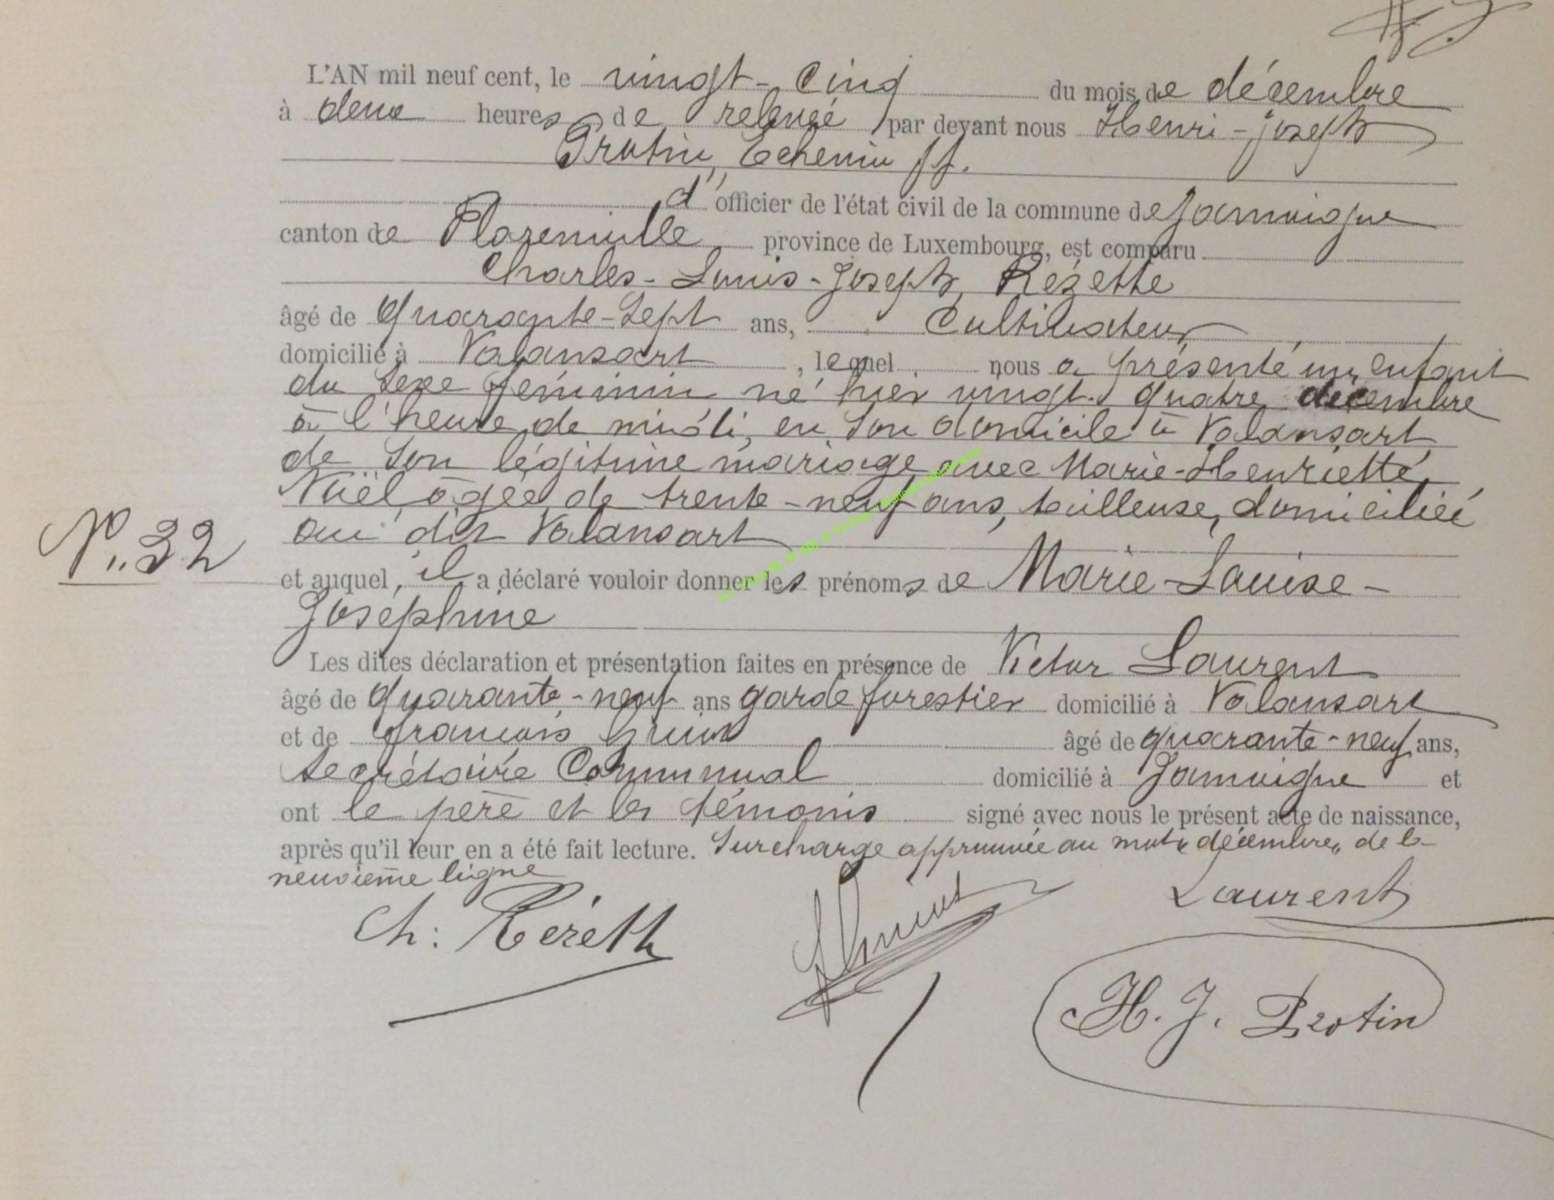 L'AN mil neuf cent, le vingt-cinq du mois de décembre
à deux heures de relevée par devant nous Henri-Joseph
Protin, Echevin ff.
d'officier de l'état civil de la commune de Jamoigne
canton de Florenville, province de Luxembourg, est comparu
Charles-Louis-Joseph, Rézette
âgé de quarante-sept ans, Cultivateur,
domicilié à Valansart, lequel nous a présenté un enfant
du sexe féminin né hier vingt-quatre décembre
à l'heure de midi, en son domicile à Valansart
de son légitime mariage avec Marie-Henriette,
Noël, âgée de trente-neuf ans, tailleuse, domiciliée
au dit Valansart
N° 32
et auquel, il a déclaré vouloir donner les prénoms de Marie-Louise-
Joséphine
Les dites déclaration et présentation faites en présence de Victor Laurent
âgé de quarante-neuf ans garde forestier domicilié à Valansart
et de François âgé de quarante-neuf ans,
secrétaire Communal domicilié à Jamoigne et
ont le père et les témoins signé avec nous le présent acte de naissance,
après qu'il leur en a été fait lecture. Surcharge approuvée au mot "décembre" de la
neuvième ligne
Laurent
Ch: Rézette
H. J. Protin